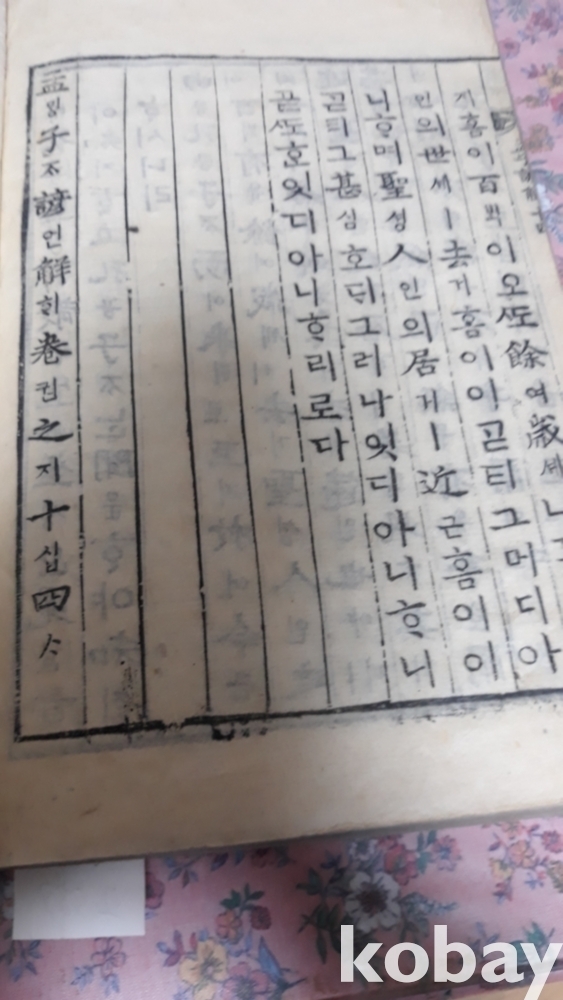 홈이百ᄇᆡᆨ이오ᄯᅩ餘여歲셰
인의世셰ㅣ去거홈이이ᄀᆞᆮ티그머디아
니ᄒᆞ며聖셩人인의居거ㅣ近근홈이이
ᄀᆞᆮ티그甚심호ᄃᆡ그러나잇디아니ᄒᆞ니
곧ᄯᅩ호잇디아니ᄒᆞ리로다
孟ᄆᆡᆼ子ᄌᆞ諺언解ᄒᆡ卷권之지十십四ᄉᆞ
kobay